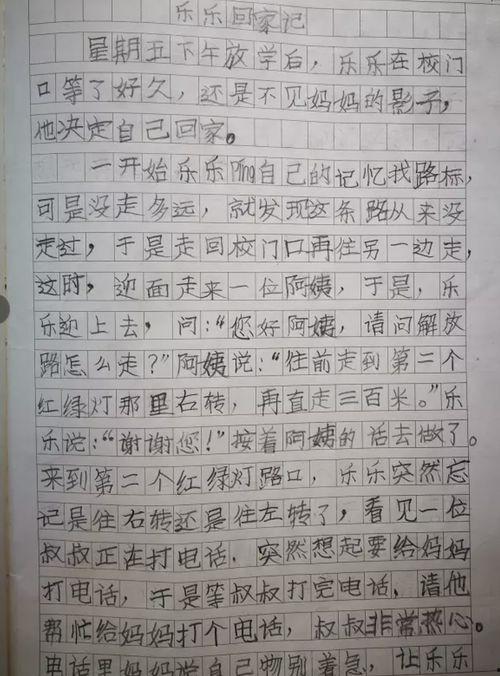 乐乐回家记
星期五下午放学后，乐乐在校门
口等了好久，还是不见妈妈的影子，
他决定自己回家。
一开始乐乐Ping自己的记忆找路标，
可是没走多远，就发现这条路从来没
走过，于是走回校门口再往另一边走，
这时，迎面走来一位阿姨，于是，乐
乐迎上去，问：“您好阿姨，请问解放
路怎么走？”阿姨说：“往前走到第二个
红绿灯那里右转，再直走三百米。”乐
乐说：“谢谢您！”接着阿姨的话去做了。
来到第二个红绿灯路口，乐乐突然忘
记是往右转还是往左转了，看见一位
叔叔正在打电话，突然想起要给妈妈
打电话，于是等叔叔打完电话，请他
帮忙给妈妈打个电话，叔叔非常热心。
电话里妈妈说自己特别着急，让乐乐